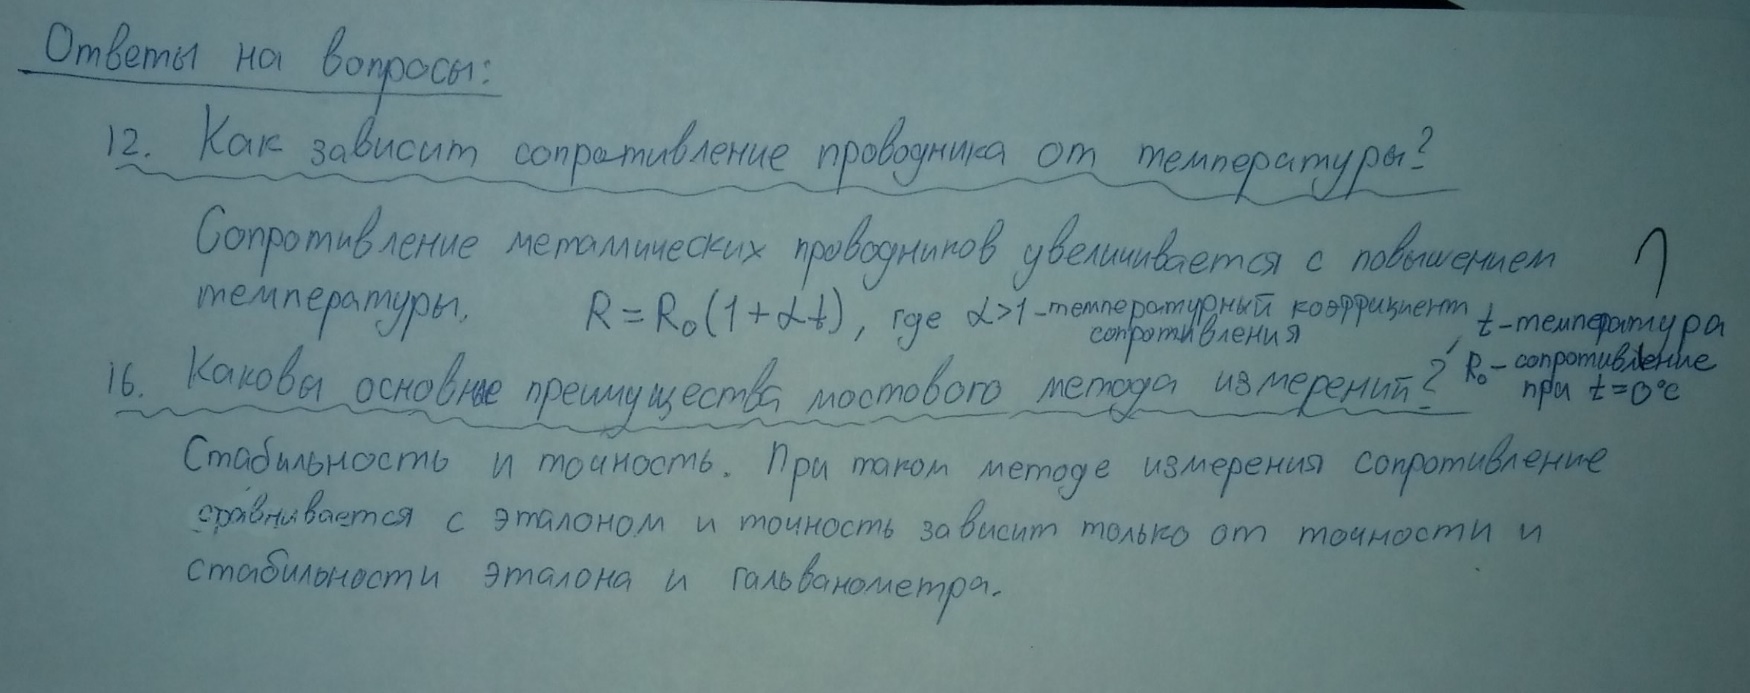 Ответы на вопросы:
12. Как зависит сопротивление проводника от температуры?
Сопротивление металлических проводников увеличивается с повышением
температуры. R = R₀(1+αt), где α>1 - температурный коэффициент
сопротивления, t - температура
R₀ - сопротивление
при t=0°C
16. Каковы основные преимущества мостового метода измерений?
Стабильность и точность. При таком методе измерения сопротивление
сравнивается с эталоном и точность зависит только от точности и
стабильности эталона и гальванометра.